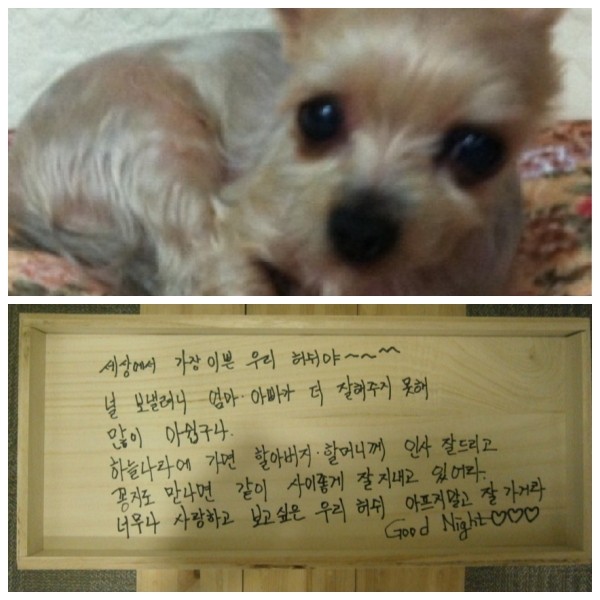 세상에서 가장 이쁜 우리 허쉬야~~~
널 보낼려니 엄마·아빠가 더 잘해주지 못해
많이 아쉽구나.
하늘나라에 가면 할아버지·할머니께 인사 잘드리고
꽁지도 만나면 같이 사이좋게 잘지내고 있어라.
너무나 사랑하고 보고싶은 우리 허쉬 아프지말고 잘 가거라
Good Night♡♡♡